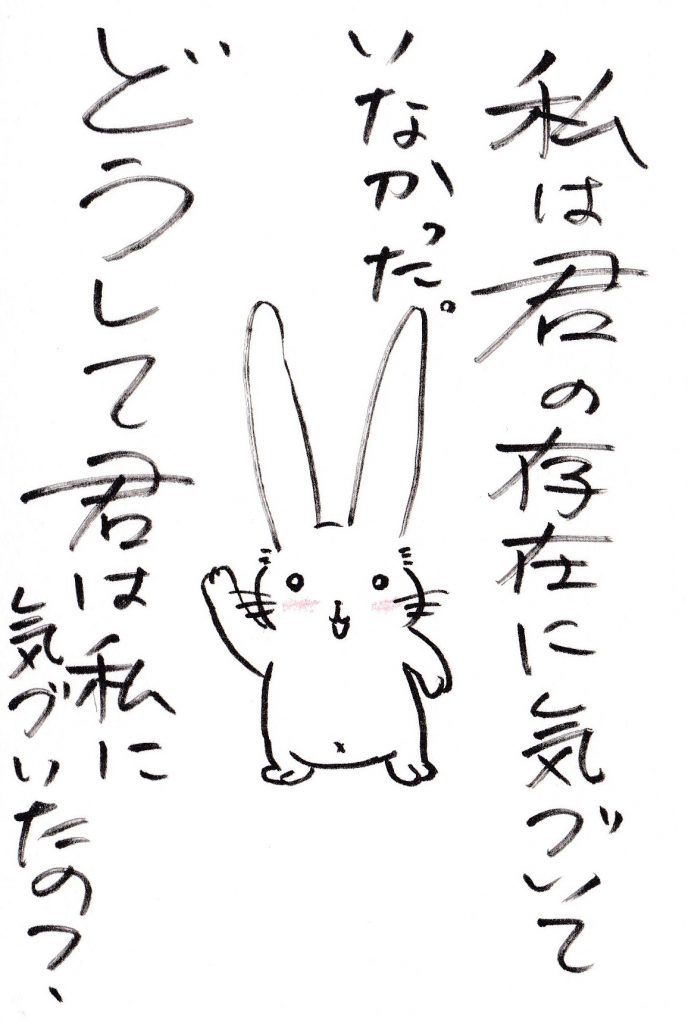 私は君の存在に気づいて
いなかった。
どうして君は私に
気づいたの?